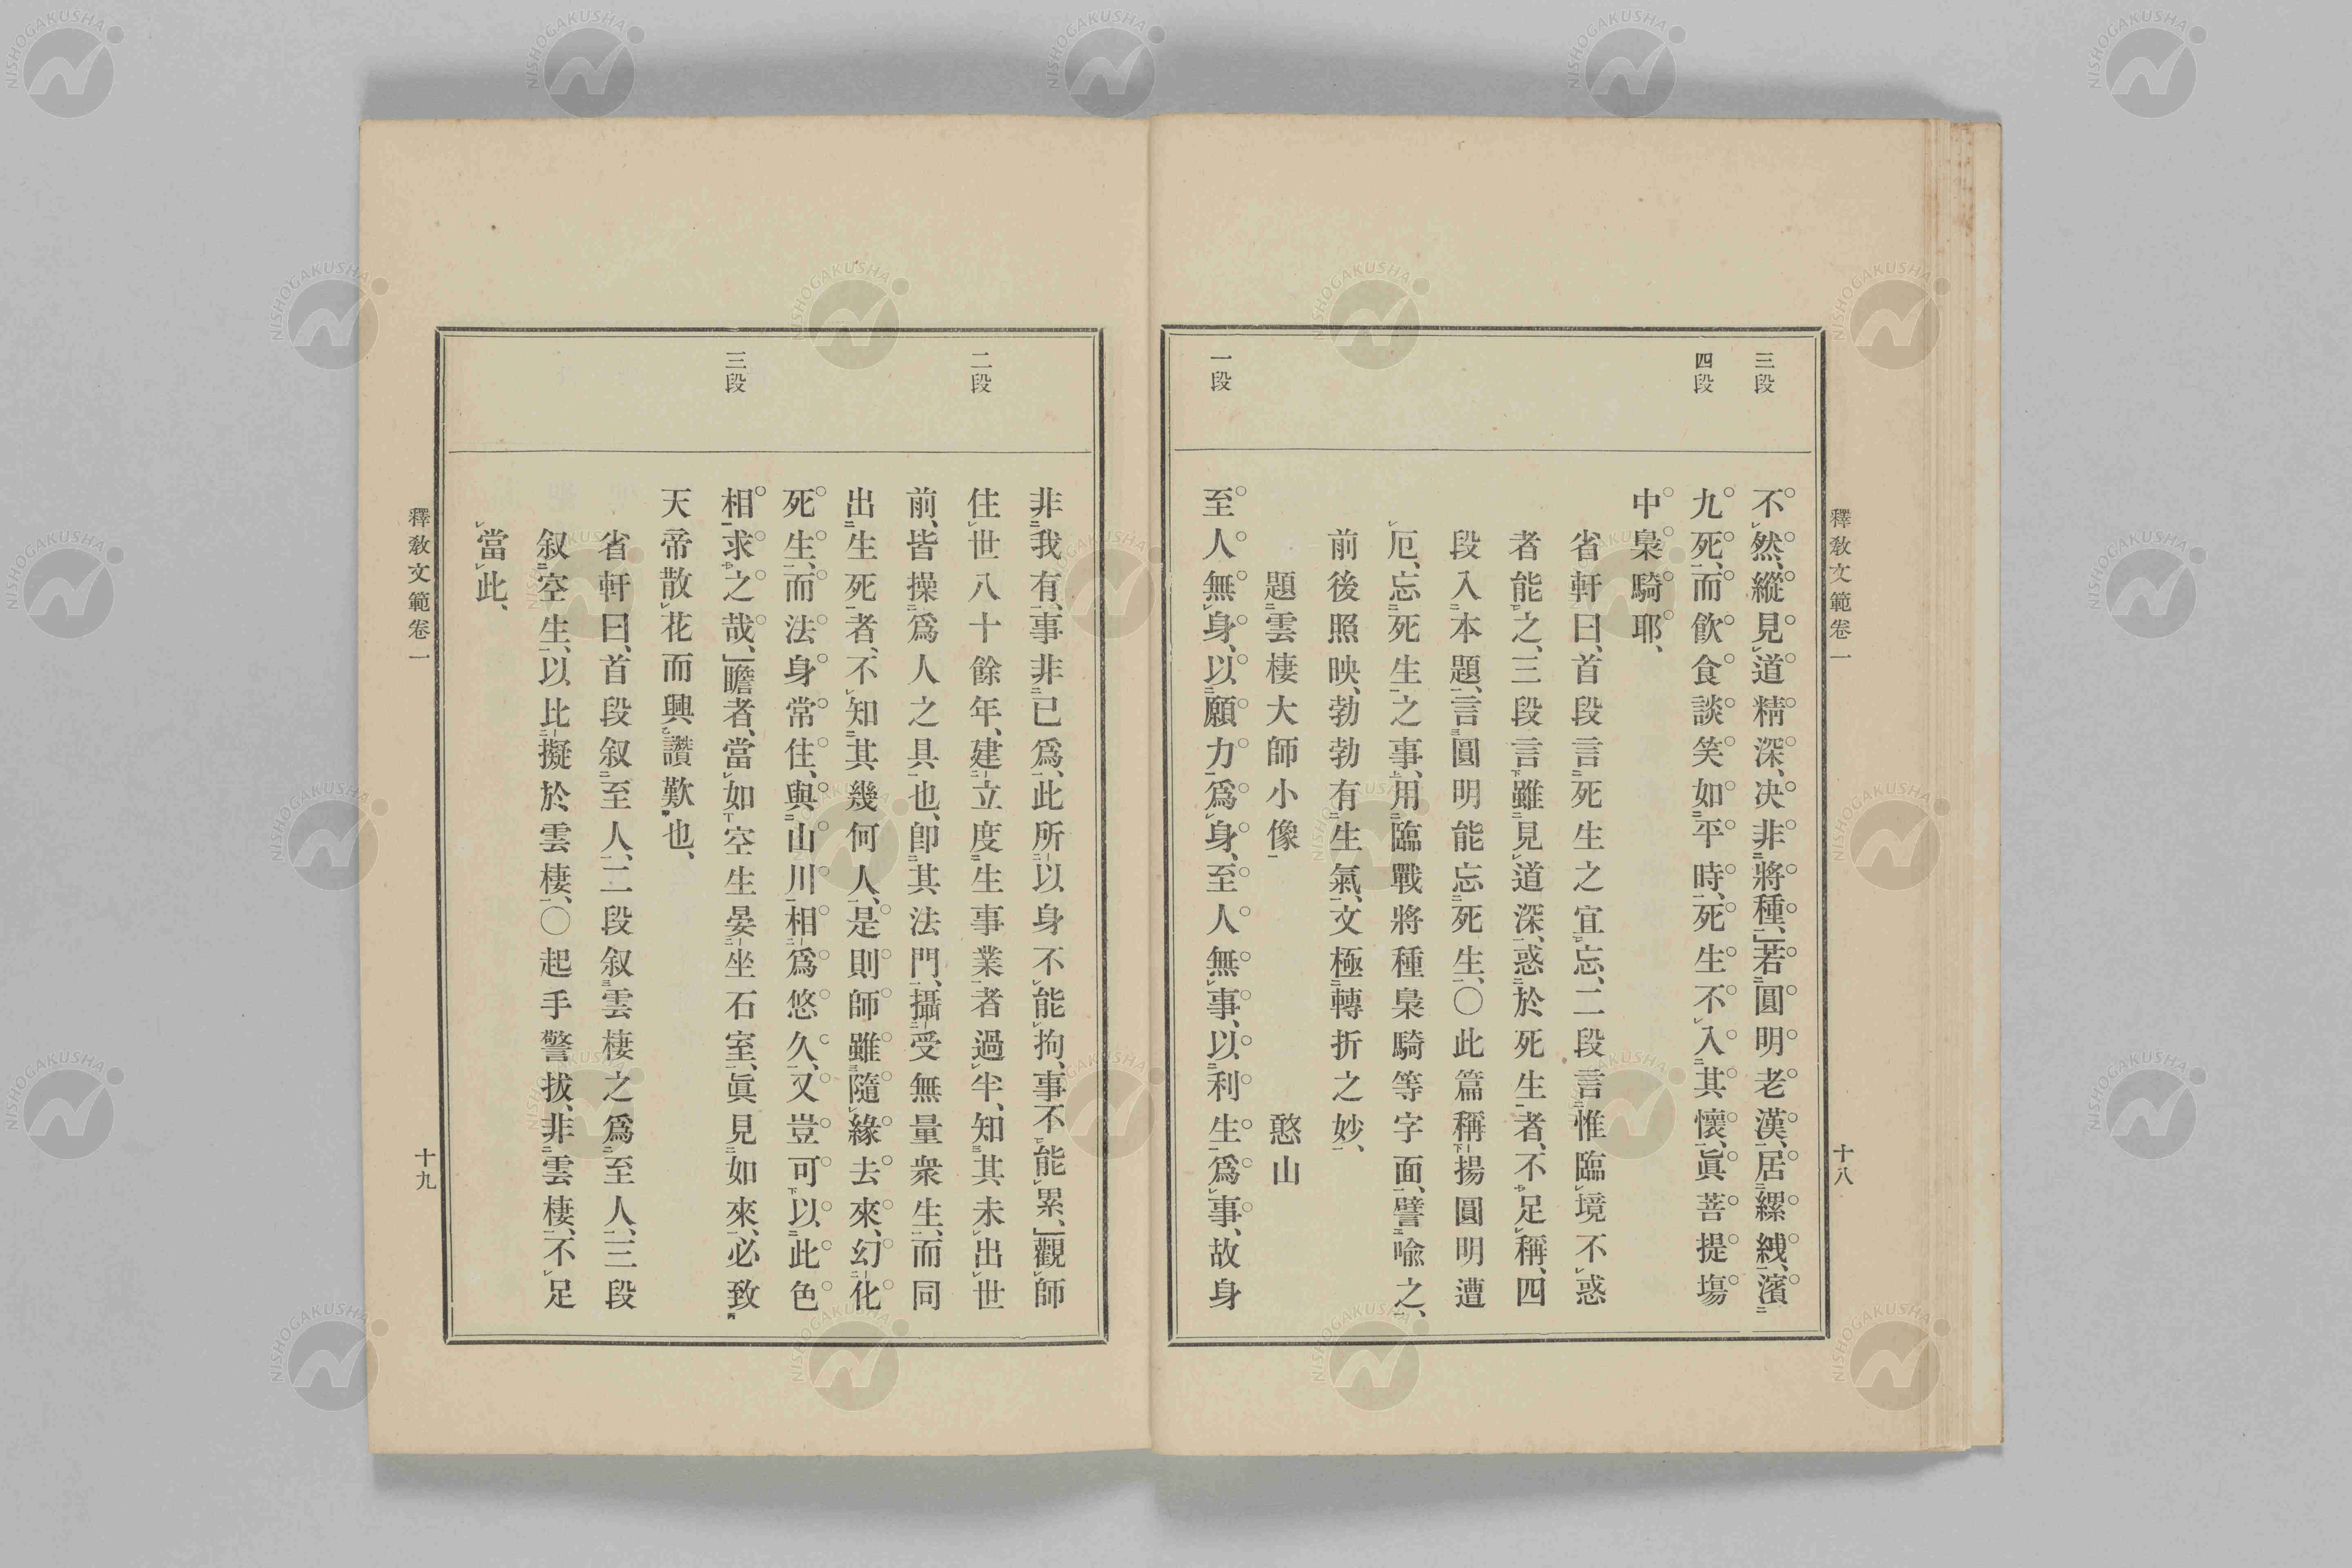 釋教文範卷一
十八
三段
四段
一段
不然、縱見道精深、决非將種、若圓明老漢、居縲絏、濱
九死、而飮食談笑如平時、死生不入其懷、眞菩提場
中梟騎耶、
省軒曰、首段言死生之宜忘、二段言惟臨境不惑
者能之、三段言雖見道深、惑於死生者、不足稱、四
段入本題、言圓明能忘死生、〇此篇稱揚圓明遭
厄、忘死生之事、用臨戰將種梟騎等字面、譬喩之、
前後照映、勃勃有生氣、文極轉折之妙、
題雲棲大師小像 憨山
至人無身、以願力爲身、至人無事、以利生爲事、故身
二段
三段
非我有、事非已爲、此所以身不能拘、事不能累、觀師
住世八十餘年、建立度生事業者過半、知其未出世
前、皆操爲人之具也、卽其法門、攝受無量衆生、而同
出生死者、不知其幾何人、是則師雖隨緣去來、幻化
死生、而法身常住、與山川相爲悠久、又豈可以此色
相求之哉、瞻者、當如空生晏坐石室、眞見如來、必致
天帝散花而興讚歎也、
省軒曰、首段叙至人、二段叙雲棲之爲至人、三段
叙空生、以比擬於雲棲、〇起手警拔、非雲棲、不足
當此、
釋教文範卷一
十九
NISHOGAKUSHA